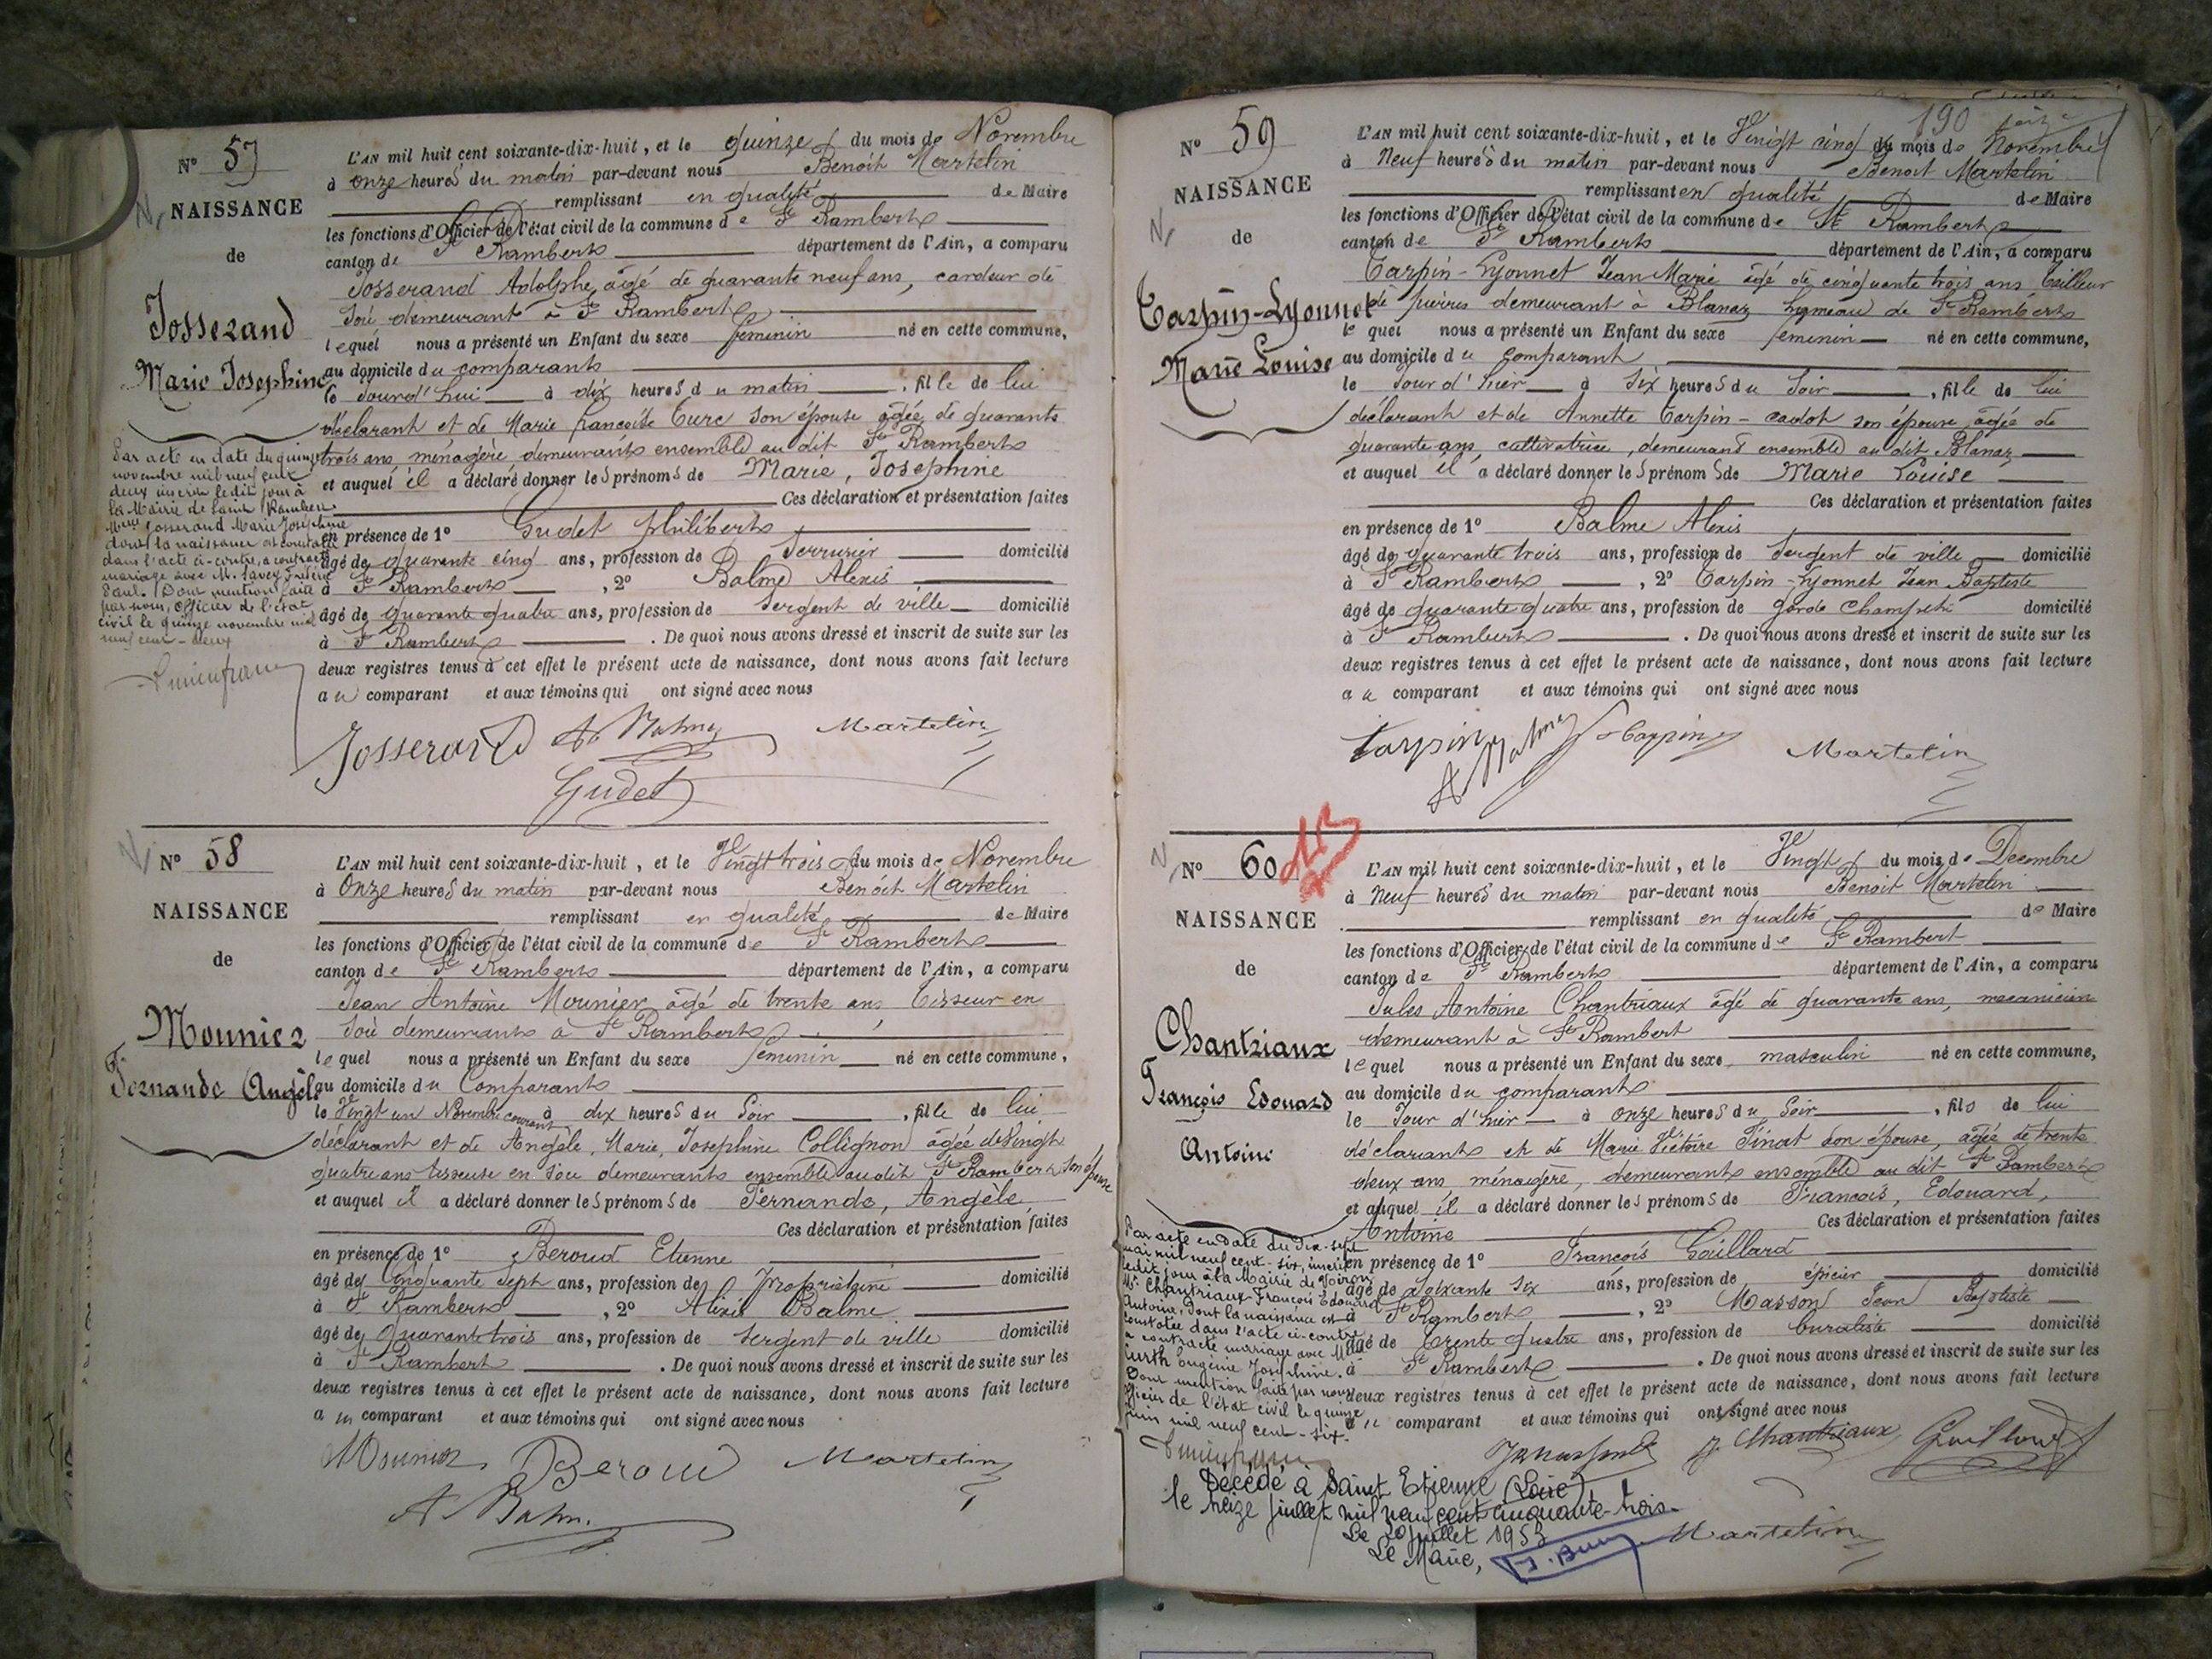 N° 57
NAISSANCE
de
Josserand
Marie Josephine
L'AN mil huit cent soixante-dix-huit, et le quinze du mois de Novembre
à onze heures du matin par-devant nous Benoit Martelin
remplissant en qualité de Maire
les fonctions d'Officier de l'état civil de la commune de St Rambert
canton de St Rambert département de l'Ain, a comparu
Josserand Adolphe, âgé de quarante neuf ans, cardeur de
soie demeurant à St Rambert
lequel nous a présenté un Enfant du sexe feminin né en cette commune,
au domicile du comparant
le Jourd'hui à dix heures du matin, fille de lui
déclarant et de Marie françoise Turc son épouse âgée de quarante
trois ans ménagère demeurants ensemble au dit St Rambert
et auquel il a déclaré donner les prénoms de Marie, Josephine
Ces déclaration et présentation faites
en présence de 1° Gudet philibert
âgé de quarante cinq ans, profession de Serrurier domicilié
à St Rambert, 2° Balme Alexis
âgé de quarante quatre ans, profession de Sergent de ville domicilié
à St Rambert. De quoi nous avons dressé et inscrit de suite sur les
deux registres tenus à cet effet le présent acte de naissance, dont nous avons fait lecture
au comparant et aux témoins qui ont signé avec nous
Par acte en date du quinze
novembre mil neuf cent
deux inscrit ledit jour à
la Mairie de Saint Rambert
Mme Josserand Marie Josephine
dont la naissance est constatée
dans l'acte ci-contre, a contracté
mariage avec M. Savey Frédéric
Paul. Pour mention faite
par nous, officier de l'état
civil le quinze novembre mil
neuf cent-deux
Josserand A. Balme Martelin
Gudet
N° 58
NAISSANCE
de
Mounier
Fernande Angèle
L'AN mil huit cent soixante-dix-huit, et le Vingt trois du mois de Novembre
à Onze heures du matin par-devant nous Benoit Martelin
remplissant en qualité de Maire
les fonctions d'Officier de l'état civil de la commune de St Rambert
canton de St Rambert département de l'Ain, a comparu
Jean Antoine Mounier âgé de trente ans Tisseur en
soie demeurants à St Rambert
lequel nous a présenté un Enfant du sexe feminin né en cette commune,
au domicile du Comparant
le Vingt un Novembre courant à dix heures du Soir, fille de lui
déclarant et de Angèle, Marie, Josephine Collignon âgée de Vingt
quatre ans tisseuse en soie demeurants ensemble au dit St Rambert son épouse
et auquel il a déclaré donner les prénoms de Fernande, Angèle
Ces déclaration et présentation faites
en présence de 1° Beroud Etienne
âgé de Cinquante sept ans, profession de Propriétaire domicilié
à St Rambert, 2° Alexis Balme
âgé de quarante trois ans, profession de Sergent de ville domicilié
à St Rambert. De quoi nous avons dressé et inscrit de suite sur les
deux registres tenus à cet effet le présent acte de naissance, dont nous avons fait lecture
au comparant et aux témoins qui ont signé avec nous
Mounier Beroud Martelin
A Balme
190
N° 59
NAISSANCE
de
Tarpin-Lyonnet
Marie Louise
L'AN mil huit cent soixante-dix-huit, et le Vingt cinq du mois de Novembre
à Neuf heures du matin par-devant nous Benoit Martelin
remplissant en qualité de Maire
les fonctions d'Officier de l'état civil de la commune de St Rambert
canton de St Rambert département de l'Ain, a comparu
Tarpin-Lyonnet Jean Marie âgé de cinquante trois ans tailleur
de pierres demeurant à Blanaz hameau de St Rambert
lequel nous a présenté un Enfant du sexe feminin né en cette commune,
au domicile du comparant
le Jour d'hier à six heures du Soir, fille de lui
déclarant et de Annette Tarpin-caulot son épouse, âgée de
quarante ans cultivatrice, demeurant ensemble au dit Blanaz
et auquel il a déclaré donner les prénoms de Marie Louise
Ces déclaration et présentation faites
en présence de 1° Balme Alexis
âgé de quarante trois ans, profession de Sergent de ville domicilié
à St Rambert, 2° Tarpin-Lyonnet Jean Baptiste
âgé de quarante quatre ans, profession de garde champetre domicilié
à St Rambert. De quoi nous avons dressé et inscrit de suite sur les
deux registres tenus à cet effet le présent acte de naissance, dont nous avons fait lecture
au comparant et aux témoins qui ont signé avec nous
Tarpin A Balme Tarpin Martelin
N° 60
NAISSANCE
de
Chantriaux
François Edouard
Antoine
L'AN mil huit cent soixante-dix-huit, et le Vingt du mois de Decembre
à Neuf heures du matin par-devant nous Benoit Martelin
remplissant en qualité de Maire
les fonctions d'Officier de l'état civil de la commune de St Rambert
canton de St Rambert département de l'Ain, a comparu
Jules Antoine Chantriaux âgé de quarante ans, mecanicien
demeurant à St Rambert
lequel nous a présenté un Enfant du sexe masculin né en cette commune,
au domicile du comparant
le Jour d'hier à onze heures du Soir, fils de lui
déclarant et de Marie Victoire Finat son épouse, âgée de trente
deux ans ménagère, demeurants ensemble au dit St Rambert
et auquel il a déclaré donner les prénoms de François, Edouard,
Antoine Ces déclaration et présentation faites
en présence de 1° François Gaillard
âgé de soixante six ans, profession de épicier domicilié
à St Rambert, 2° Masson Jean Baptiste
âgé de trente quatre ans, profession de buraliste domicilié
à St Rambert. De quoi nous avons dressé et inscrit de suite sur les
deux registres tenus à cet effet le présent acte de naissance, dont nous avons fait lecture
au comparant et aux témoins qui ont signé avec nous
Par acte en date du dix-sept
mai mil neuf cent-six, inscrit
ledit jour à la Mairie de Voiron
Mr Chantriaux François Edouard
Antoine, dont la naissance est
constatée dans l'acte ci-contre
a contracté mariage avec Mlle
Eugénie Joséphine.
Pour mention faite par nous
officier de l'état civil le quinze
juin mil neuf cent-six.
J. Chantriaux
Décédé à Saint Etienne (Loire)
le treize juillet mil neuf cent cinquante-trois.
Le 20 juillet 1953
Le Maire,
Martelin